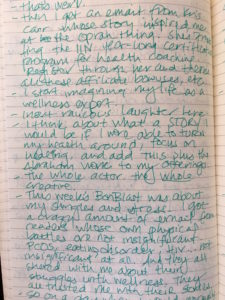 that's work.
- then I got an email from Kris
Carr whose story inspired me
at the Oprah thing. She's promo
ing the IIN year-long certificate
program for health coaching.
Register through her and there's
all these affiliate bonuses, etc.
I start imagining my life as a
wellness expert.
- insert raucous laughter here
- I think about what a STORY it
would be if I were able to turn
my health around, focus on
healing, and add this plus the
breath work to my offerings.
- the whole actor, the whole
creative.
- This week's BonBlast was about
my struggles and stress. I got
a crazy amount of email from
readers whose own physical
battles are not insignificant.
PCOS, eating disorders, - not
insignificant at all. And they all
shared with me about their
struggles with wellness. They
entrusted me with their stories
so on a